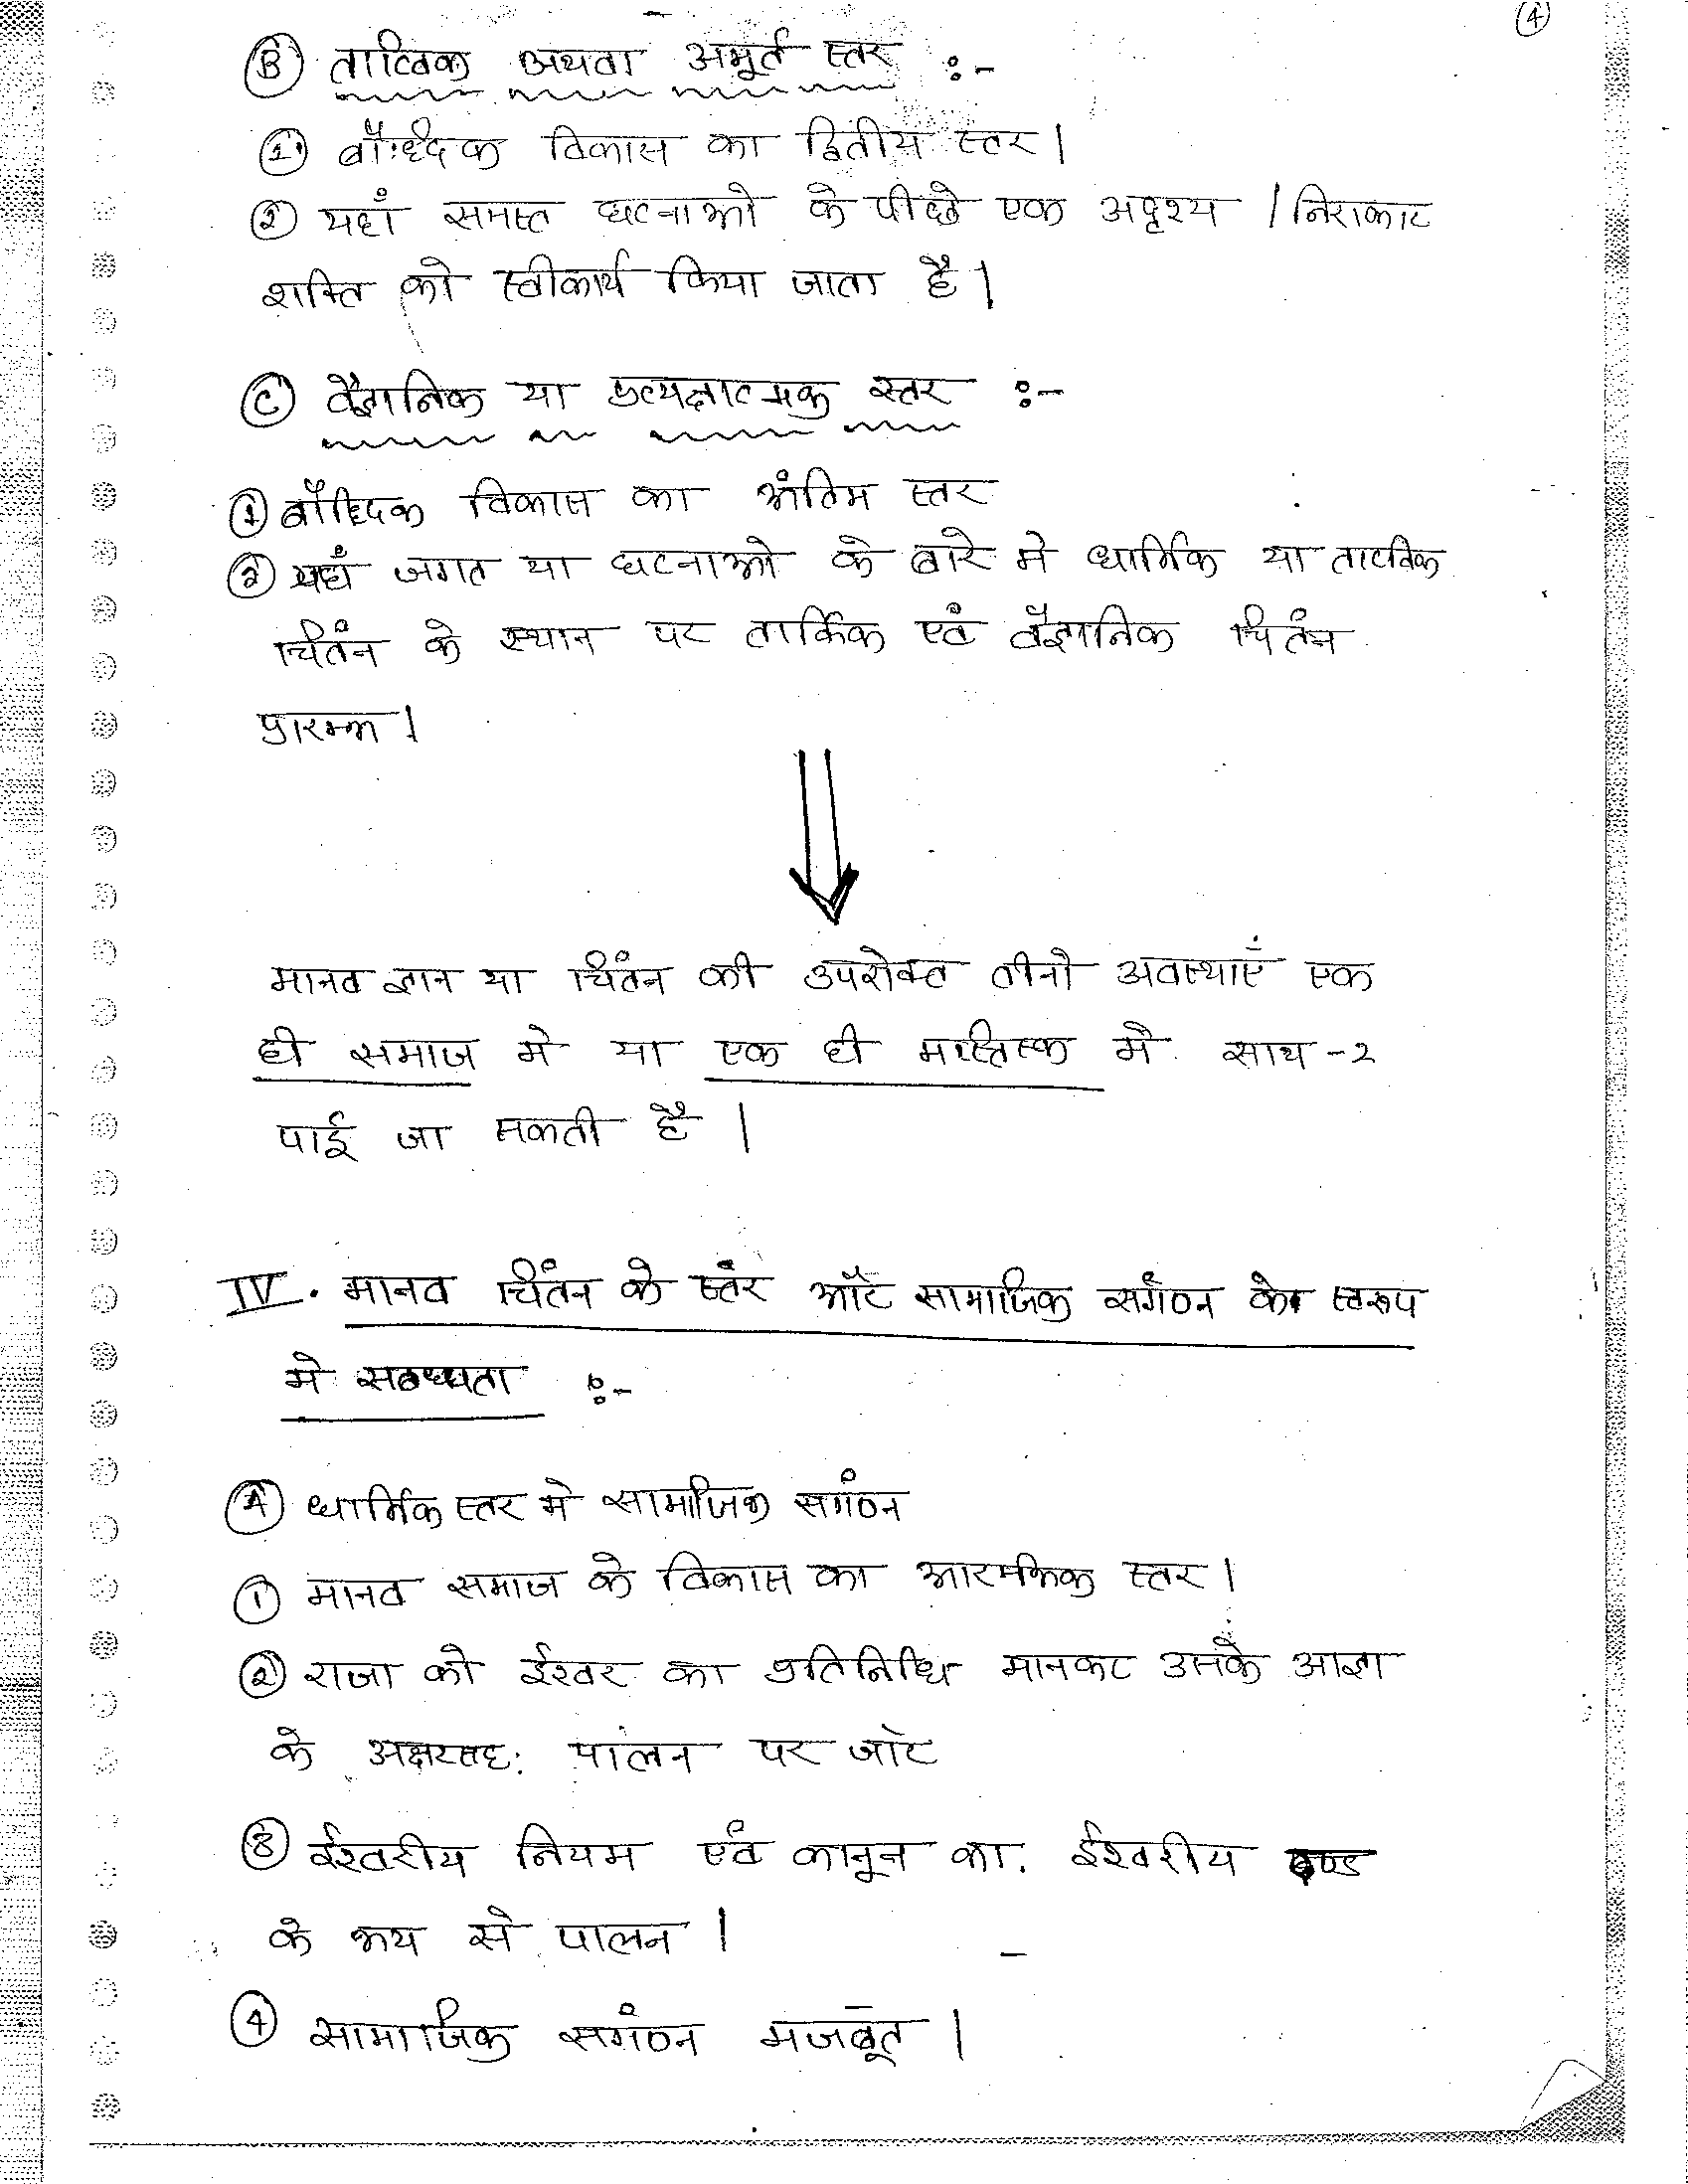 ④
Ⓑ तात्विक अथवा अमूर्त स्तर :-
① बौद्धिक विकास का द्वितीय स्तर।
② यहाँ समस्त घटनाओ के पीछे एक अदृश्य / निराकार
शक्ति को स्वीकार्य किया जाता है।
Ⓒ वैज्ञानिक या प्रत्यक्षात्मक स्तर :-
① बौद्धिक विकास का अंतिम स्तर
② यहाँ जगत या घटनाओ के बारे मे धार्मिक या तात्विक
चितंन के स्थान पर तार्किक एवं वैज्ञानिक चितंन
प्रारम्भ।
मानव ज्ञान या चितंन की उपरोक्त तीनो अवस्थाएँ एक
ही समाज मे या एक ही मस्तिस्क मे साथ -२
पाई जा सकती है।
IV. मानव चितंन के स्तर और सामाजिक सगंठन के स्वरूप
मे सबध्धता :-
Ⓐ धार्मिक स्तर मे सामाजिक सगंठन
① मानव समाज के विकास का आरम्भिक स्तर।
② राजा को ईश्वर का प्रतिनिधि मानकर उसके आज्ञा
के अक्षरतह: पालन पर जोर
③ ईश्वरीय नियम एवं कानून का ईश्वरीय दण्ड
के भय से पालन।
④ सामाजिक सगंठन मजबूत।